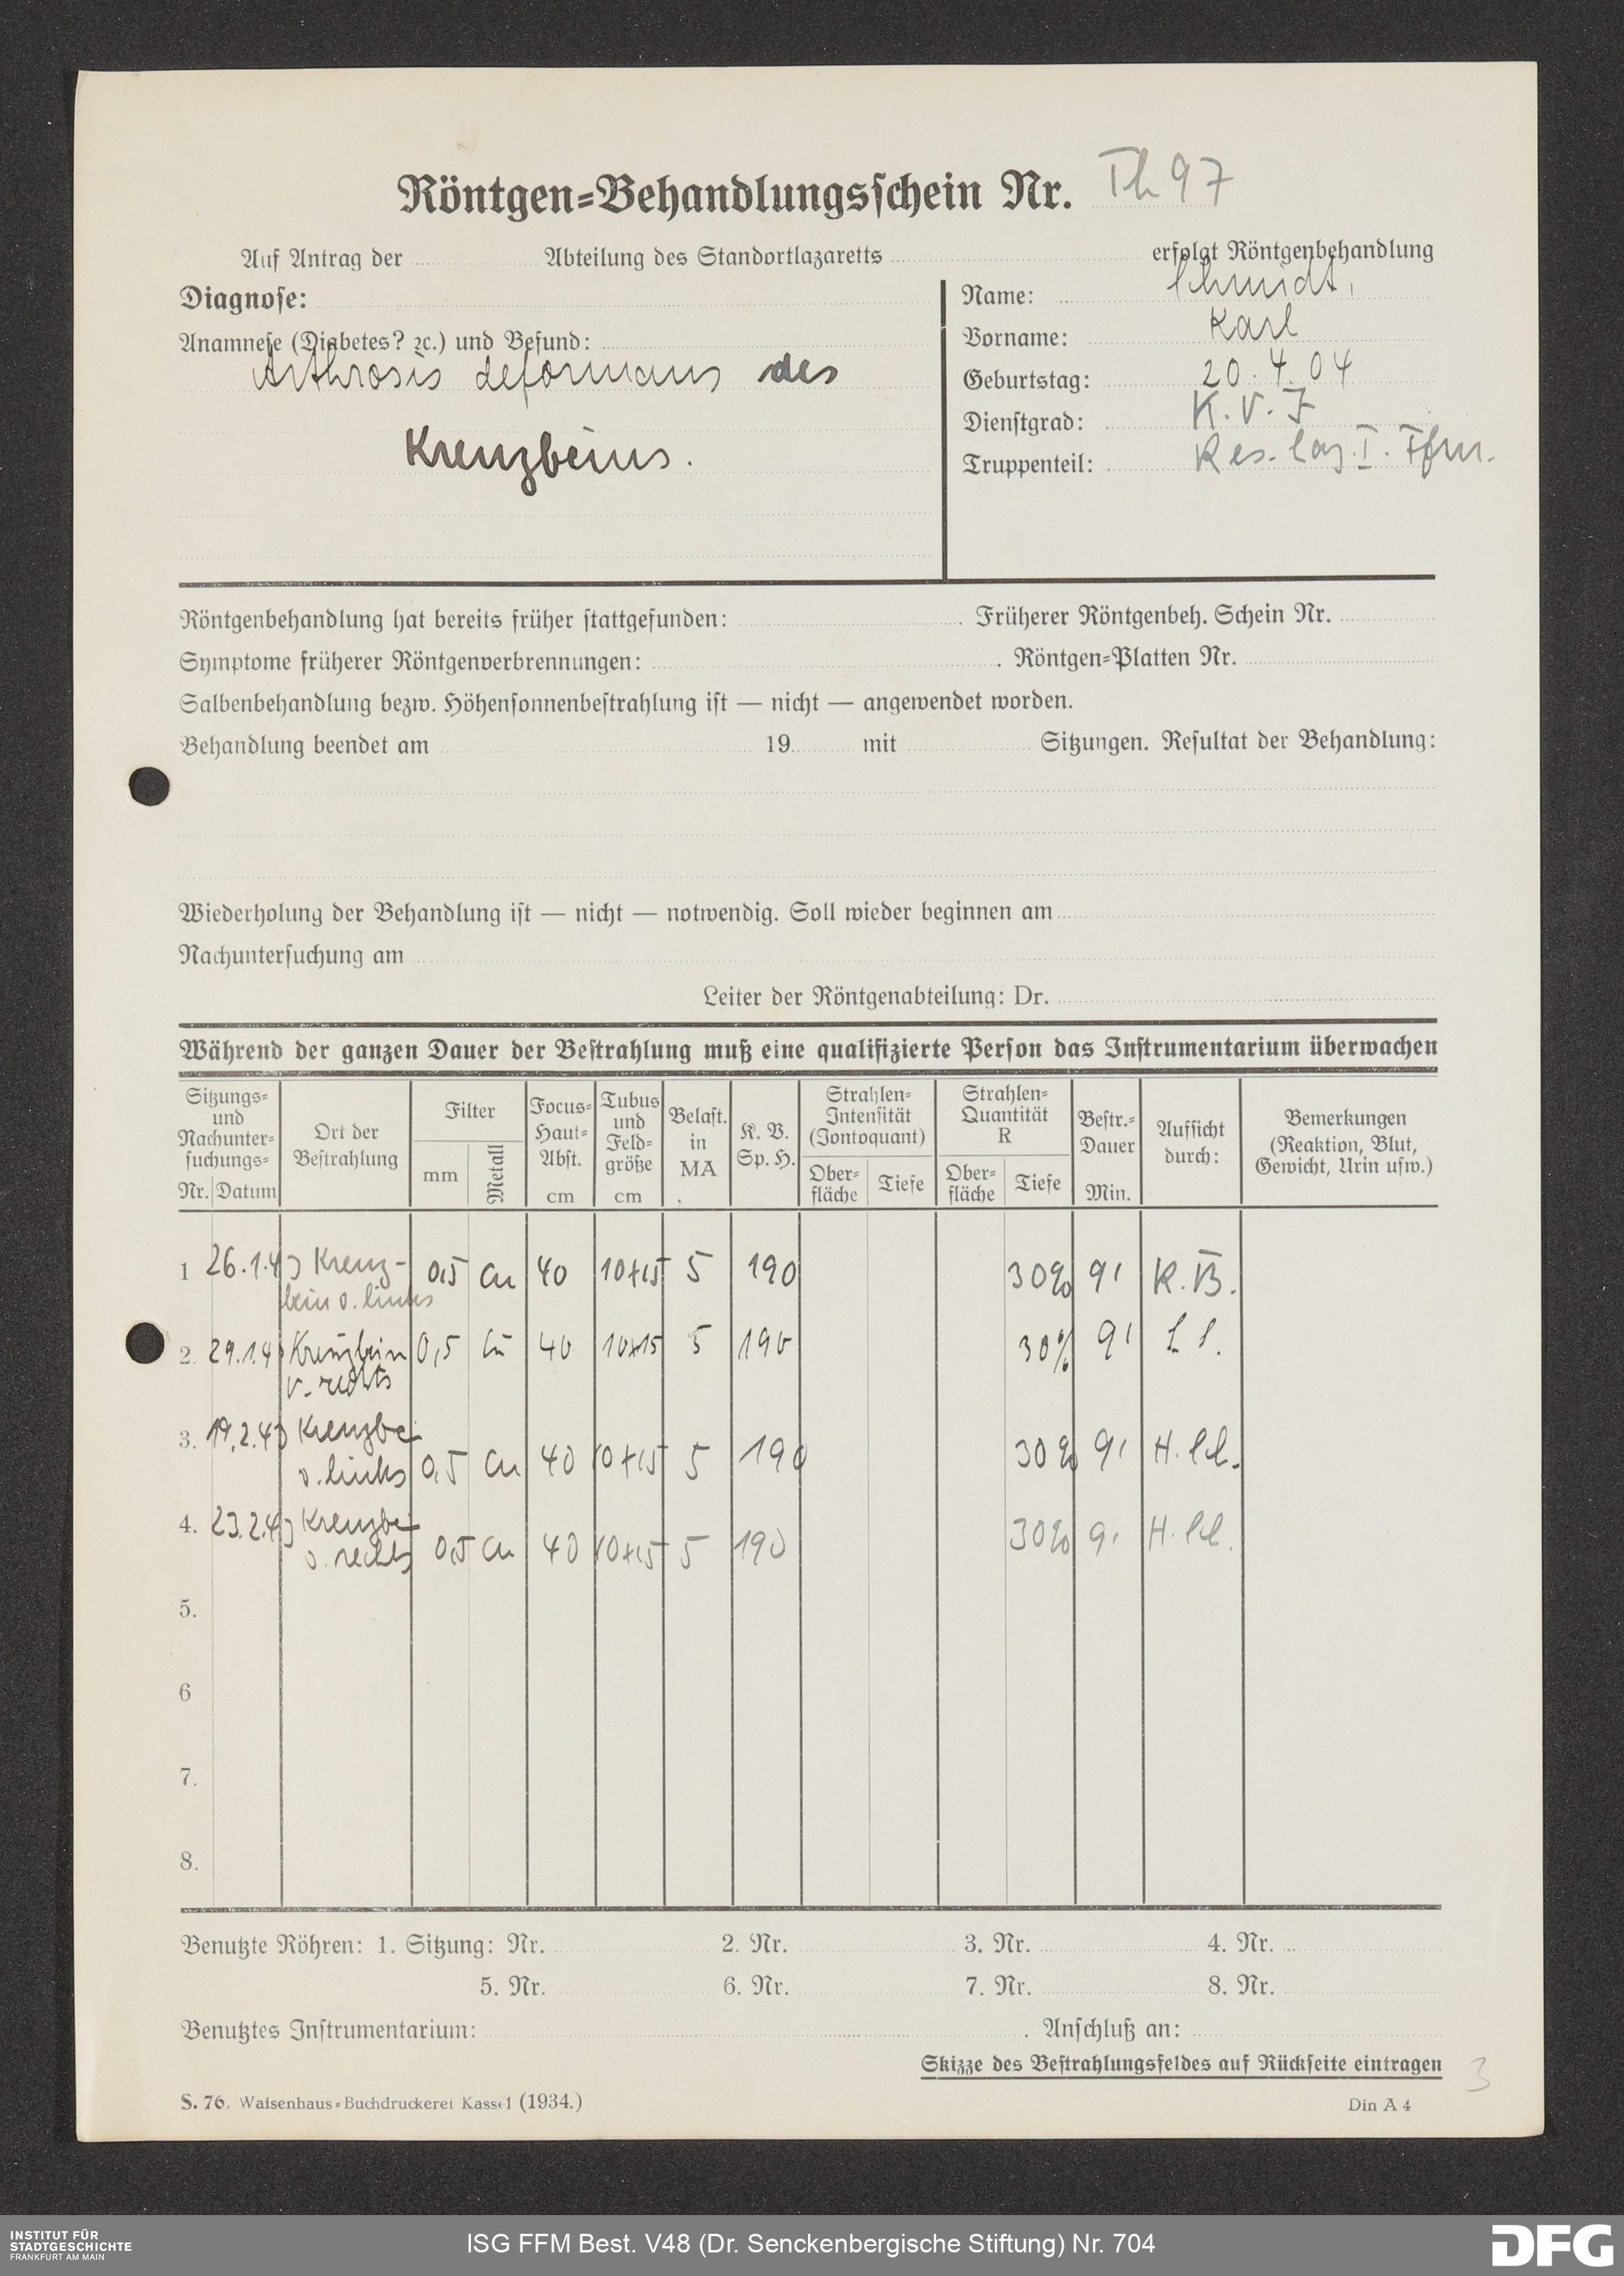 Röntgen=Behandlungsschein Nr. Th 97
Auf Antrag der Abteilung des Standortlazaretts erfolgt Röntgenbehandlung
Diagnose:
Anamnese (Diabetes? ꝛc.) und Befund:
Arthrosis deformans des
Kreuzbeins.
Name: Schmidt,
Vorname: Karl
Geburtstag: 20.4.04
Dienstgrad: K.V.J
Truppenteil: Res. Laz. I. Ffm.
Röntgenbehandlung hat bereits früher stattgefunden: . Früherer Röntgenbeh. Schein Nr.
Symptome früherer Röntgenverbrennungen: . Röntgen=Platten Nr.
Salbenbehandlung bezw. Höhensonnenbestrahlung ist — nicht — angewendet worden.
Behandlung beendet am 19 mit Sitzungen. Resultat der Behandlung:
Wiederholung der Behandlung ist — nicht — notwendig. Soll wieder beginnen am
Nachuntersuchung am
Leiter der Röntgenabteilung: Dr.
Während der ganzen Dauer der Bestrahlung muß eine qualifizierte Person das Instrumentarium überwachen
Sitzungs=
und
Nachunter=
suchungs=
Nr. Datum
Ort der
Bestrahlung
Filter
mm Metall
Focus=
Haut=
Abst.
cm
Tubus
und
Feld=
größe
cm
Belast.
in
MA
K. V.
Sp. H.
Strahlen=
Intensität
(Jontoquant)
Ober=
fläche Tiefe
Strahlen=
Quantität
R
Ober=
fläche Tiefe
Bestr.=
Dauer
Min.
Aufsicht
durch:
Bemerkungen
(Reaktion, Blut,
Gewicht, Urin usw.)
1 26.1.43 Kreuz- 0,5 Cu 40 10x15 5 190 30% 9' K.B.
bein v. links
2. 29.1.43 Kreuzbein 0,5 Cu 40 10x15 5 190 30% 9'
v. rechts
3. 19.2.43 Kreuzbe
v. links 0,5 Cu 40 10x15 5 190 30% 9' H.
4. 23.2.43 Kreuzbe
v. rechts 0,5 Cu 40 10x15 5 190 30% 9' H.
5.
6
7.
8.
Benutzte Röhren: 1. Sitzung: Nr. 2. Nr. 3. Nr. 4. Nr.
5. Nr. 6. Nr. 7. Nr. 8. Nr.
Benutztes Instrumentarium: . Anschluß an:
Skizze des Bestrahlungsfeldes auf Rückseite eintragen
3
S. 76. Waisenhaus=Buchdruckerei Kassel (1934.) Din A 4
INSTITUT FÜR
STADTGESCHICHTE
FRANKFURT AM MAIN
ISG FFM Best. V48 (Dr. Senckenbergische Stiftung) Nr. 704
DFG